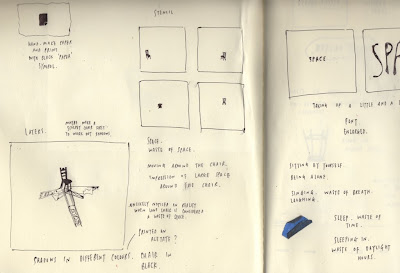 HAND MADE PAPER
AND PRINT
WITH BLACK 'PAPER'
STENCIL.
STENCIL
LAYERS.
MAYBE MAKE A
STENCIL OVER LINES
TO WORK OUT SHADOWS
SHADOWS IN DIFFERENT COLOURS.
SPACE.
WASTE OF SPACE.
MOVING AROUND THE CHAIR.
IMPRESSION OF LARGE SPACE
AROUND THE CHAIR.
WHEN
CHAIR IS CONSIDERED
A WASTE OF SPACE.
PRINTED ON
ACETATE?
CHAIR IN
BLACK.
SPACE
SPA
TAKING UP A LITTLE AND A
FONT
ENLARGED.
SITTING BY YOURSELF.
BEING ALONE.
SINGING. WASTE OF BREATH.
LAUGHING.
SLEEP. WASTE OF
TIME.
SLEEPING IN.
WASTE OF DAYLIGHT
HOURS.